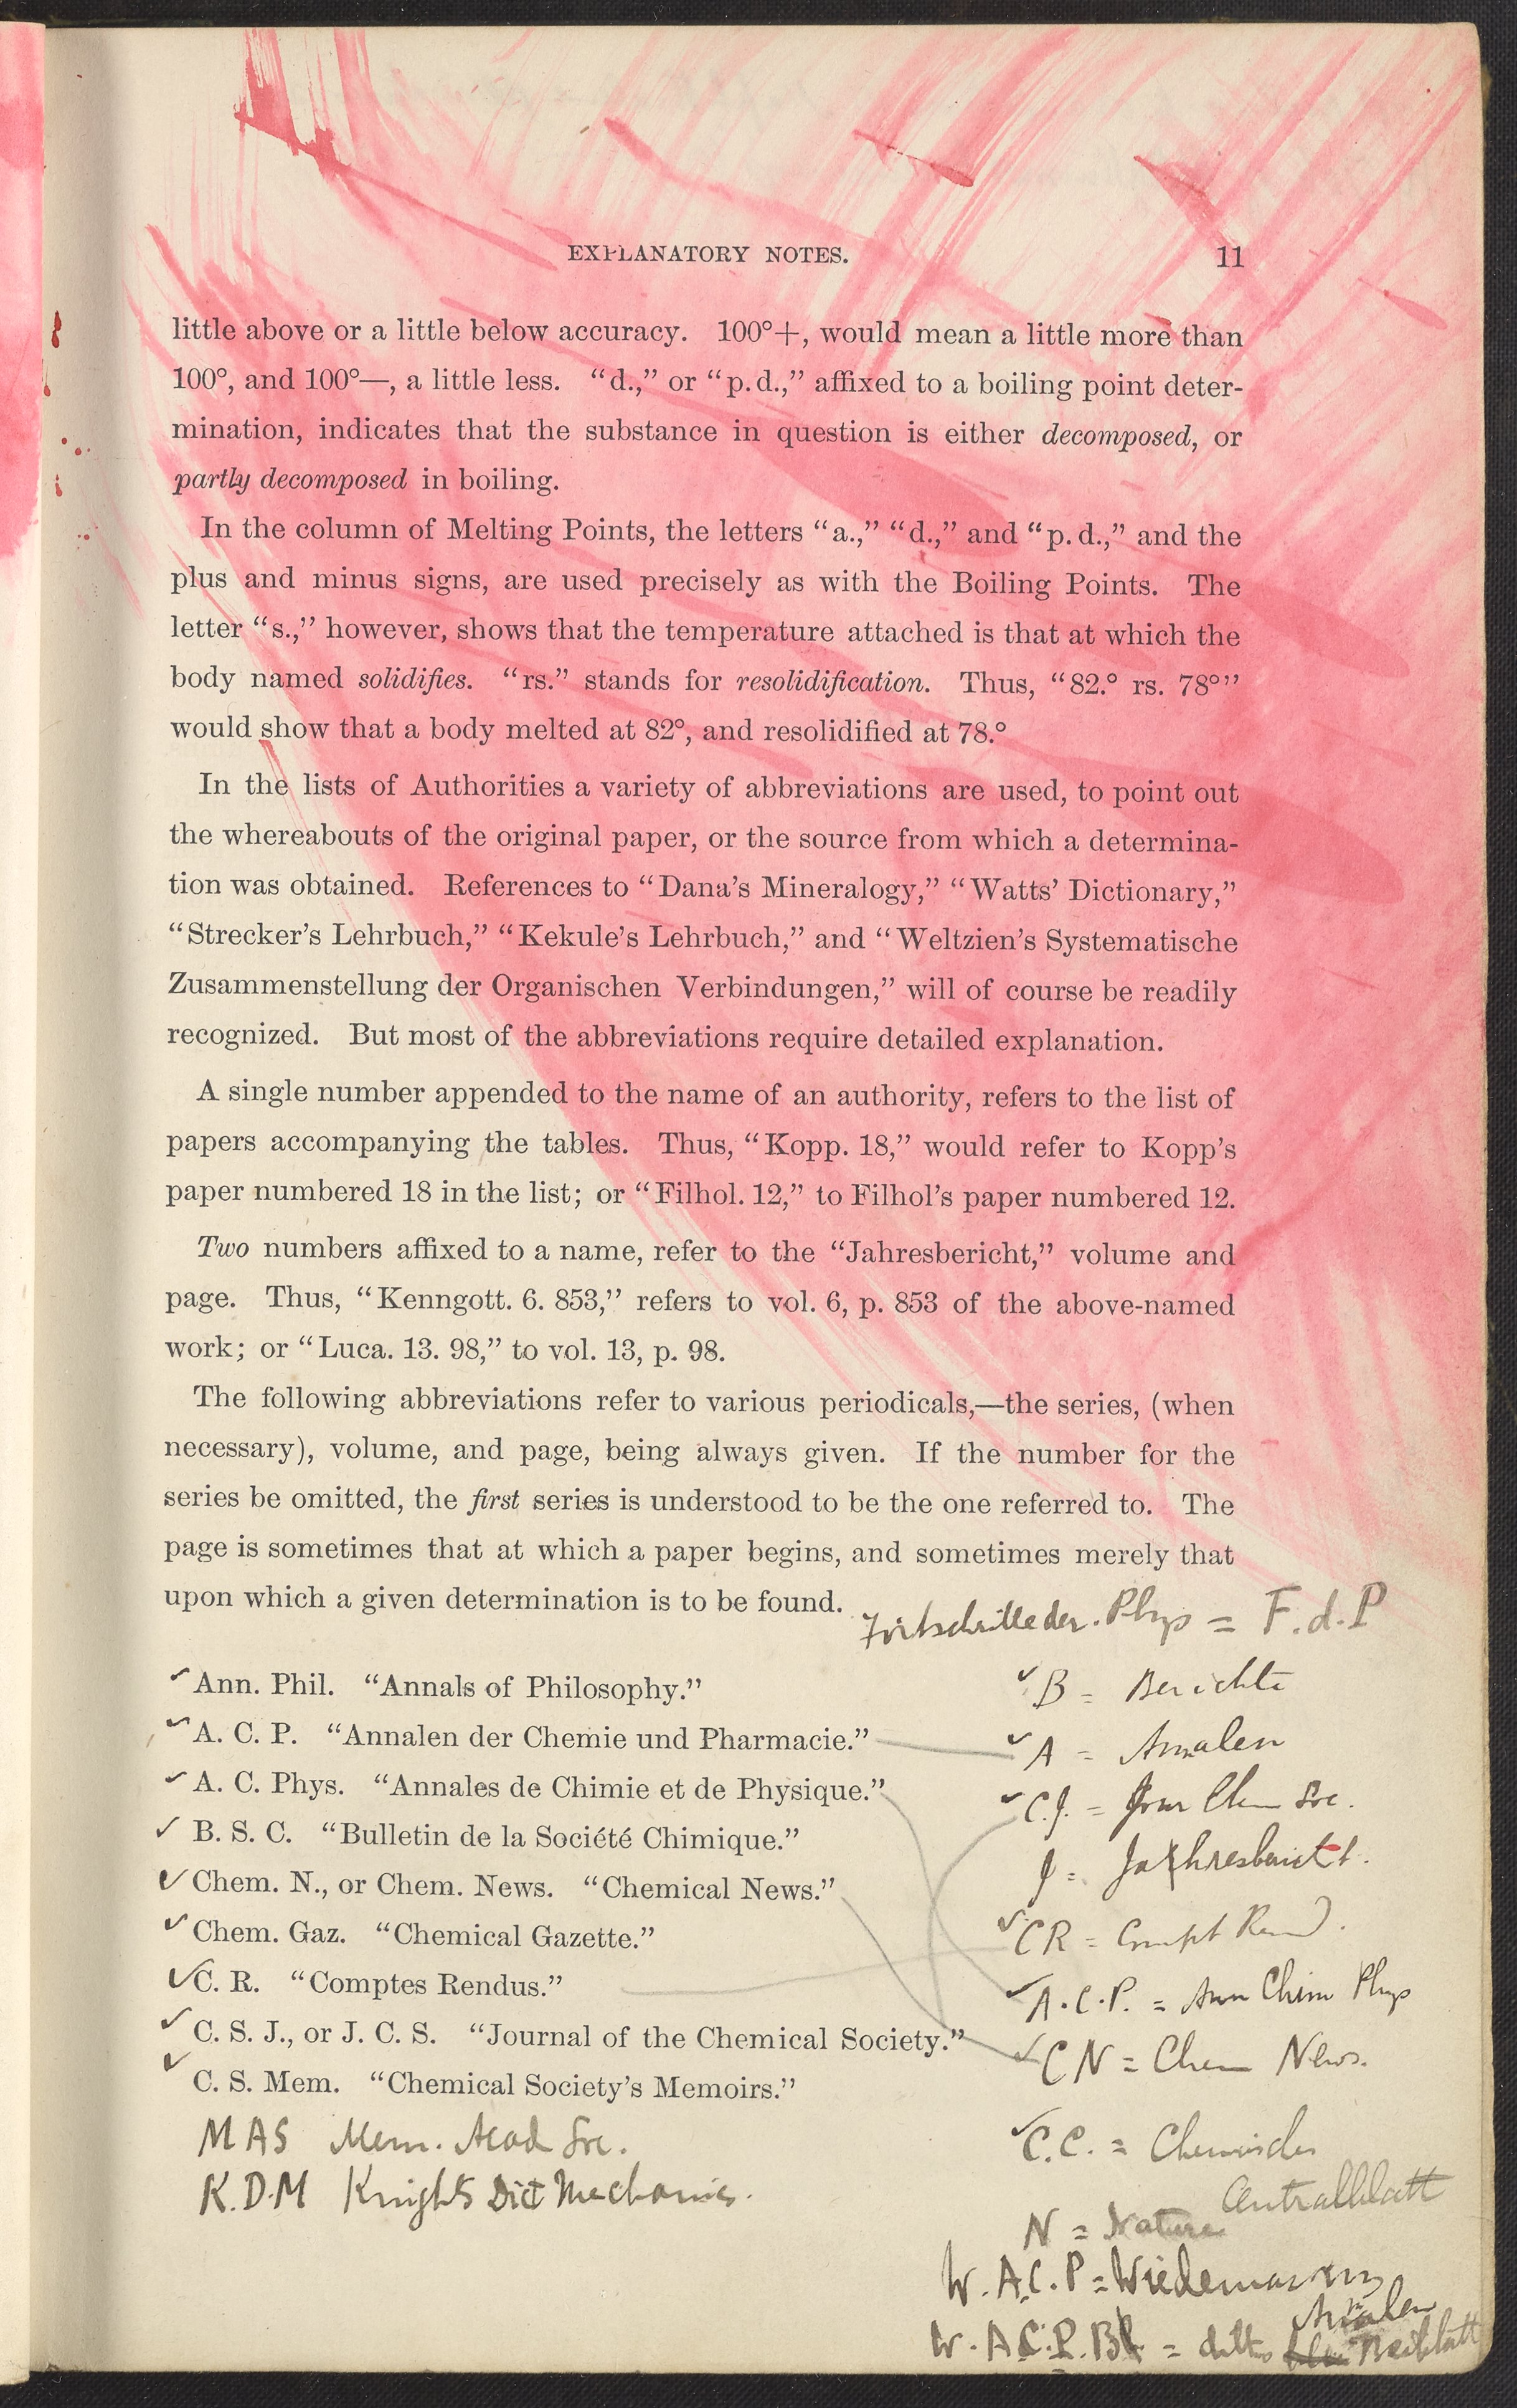 EXPLANATORY NOTES. 11
little above or a little below accuracy. 100°+, would mean a little more than
100°, and 100°—, a little less. “d.,” or “p. d.,” affixed to a boiling point deter-
mination, indicates that the substance in question is either decomposed, or
partly decomposed in boiling.
In the column of Melting Points, the letters “a.,” “d.,” and “p. d.,” and the
plus and minus signs, are used precisely as with the Boiling Points. The
letter “s.,” however, shows that the temperature attached is that at which the
body named solidifies. “rs.” stands for resolidification. Thus, “82.° rs. 78°”
would show that a body melted at 82°, and resolidified at 78.°
In the lists of Authorities a variety of abbreviations are used, to point out
the whereabouts of the original paper, or the source from which a determina-
tion was obtained. References to “Dana’s Mineralogy,” “Watts’ Dictionary,”
“Strecker’s Lehrbuch,” “Kekule’s Lehrbuch,” and “Weltzien’s Systematische
Zusammenstellung der Organischen Verbindungen,” will of course be readily
recognized. But most of the abbreviations require detailed explanation.
A single number appended to the name of an authority, refers to the list of
papers accompanying the tables. Thus, “Kopp. 18,” would refer to Kopp’s
paper numbered 18 in the list; or “Filhol. 12,” to Filhol’s paper numbered 12.
Two numbers affixed to a name, refer to the “Jahresbericht,” volume and
page. Thus, “Kenngott. 6. 853,” refers to vol. 6, p. 853 of the above-named
work; or “Luca. 13. 98,” to vol. 13, p. 98.
The following abbreviations refer to various periodicals,—the series, (when
necessary), volume, and page, being always given. If the number for the
series be omitted, the first series is understood to be the one referred to. The
page is sometimes that at which a paper begins, and sometimes merely that
upon which a given determination is to be found.
Fortschritte der. Phys = F. d. P
✓ Ann. Phil. “Annals of Philosophy.”
✓ A. C. P. “Annalen der Chemie und Pharmacie.”
✓ A. C. Phys. “Annales de Chimie et de Physique.”
✓ B. S. C. “Bulletin de la Société Chimique.”
✓ Chem. N., or Chem. News. “Chemical News.”
✓ Chem. Gaz. “Chemical Gazette.”
✓ C. R. “Comptes Rendus.”
✓ C. S. J., or J. C. S. “Journal of the Chemical Society.”
✓ C. S. Mem. “Chemical Society’s Memoirs.”
MAS Mem. Acad Soc.
K. D. M Knights Dict Mechanics.
✓ B = Berichte
✓ A = Annalen
✓ C.J. = Jour Chem Soc.
J = Jahresbericht.
✓ CR = Compt Rend.
✓ A. C. P. = Ann Chim Phys
✓ CN = Chem News.
✓ C. C. = Chemisches
Centralblatt
N = Nature
W. A.C. P = Wiedemanns
Annalen
W. A.C.P. Bl = ditto Beiblatt